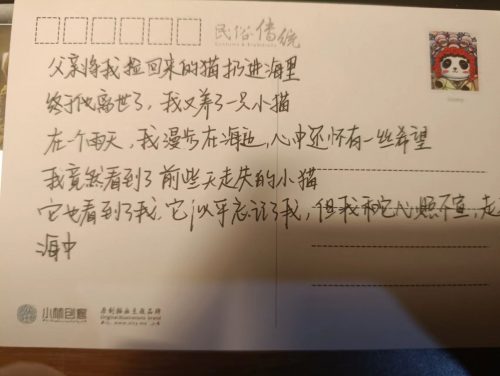 民俗·传统
父亲将我捡回来的猫扔进海里
终于他离世了，我又养了一只小猫
在一个雨天，我漫步在海边，心中还怀有一丝希望
我竟然看到了前些天走失的小猫
它也看到了我，它似乎忘记了我，但我和它心照不宣，走
海中
小林创意
原创插画主题品牌
Original illustrations brand